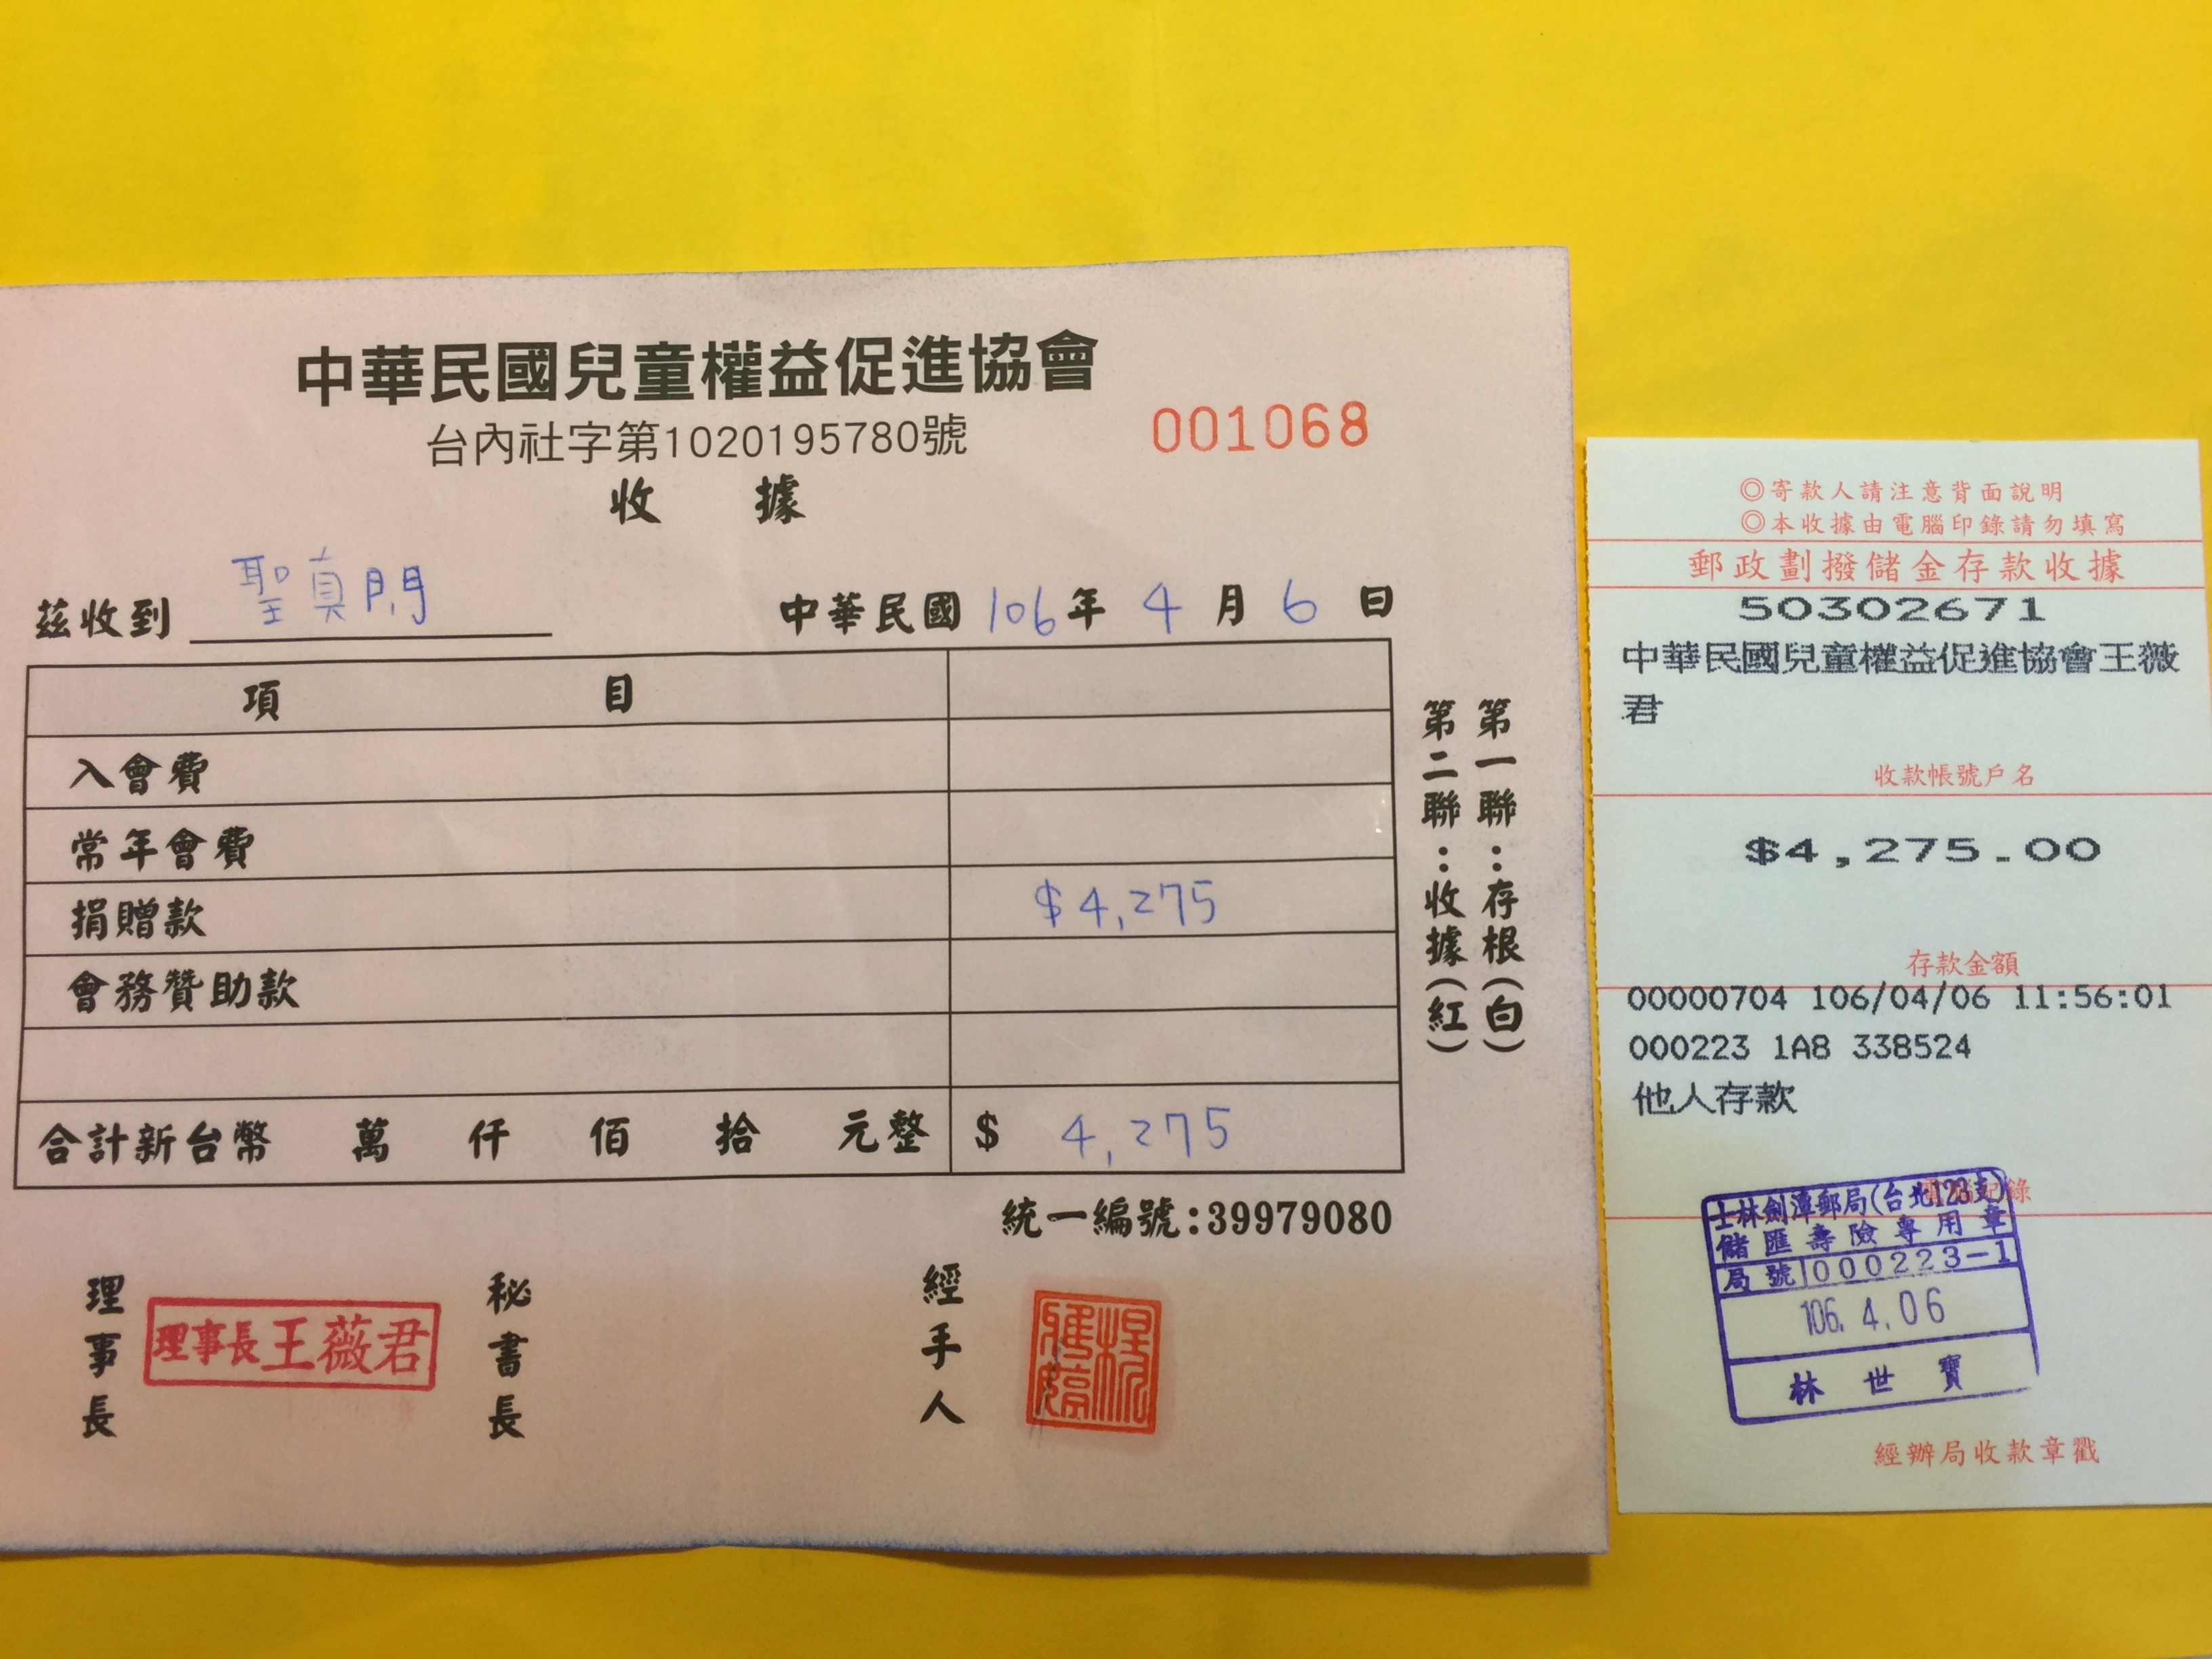 中華民國兒童權益促進協會
台內社字第1020195780號
001068
收據
茲收到 聖真門 中華民國 106 年 4 月 6 日
項目
入會費
常年會費
捐贈款 $4,275
會務贊助款
合計新台幣 萬 仟 佰 拾 元整 $ 4,275
第一聯：存根（白）
第二聯：收據（紅）
統一編號:39979080
理事長 理事長王薇君 秘書長 經手人
◎寄款人請注意背面說明
◎本收據由電腦印錄請勿填寫
郵政劃撥儲金存款收據
50302671
中華民國兒童權益促進協會王薇
君
收款帳號戶名
$4,275.00
存款金額
00000704 106/04/06 11:56:01
000223 1A8 338524
他人存款
電腦紀錄
士林劍潭郵局(台北128支)
儲匯壽險專用章
局號 000223-1
106. 4. 06
林世寶
經辦局收款章戳